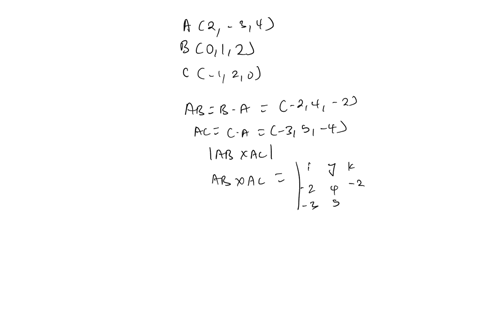 A (2, -3, 4)
B (0, 1, 2)
C (-1, 2, 0)
AB = B - A = (-2, 4, -2)
AC = C - A = (-3, 5, -4)
|AB X AC|
AB X AC = | i y k
-2 4 -2
-3 5